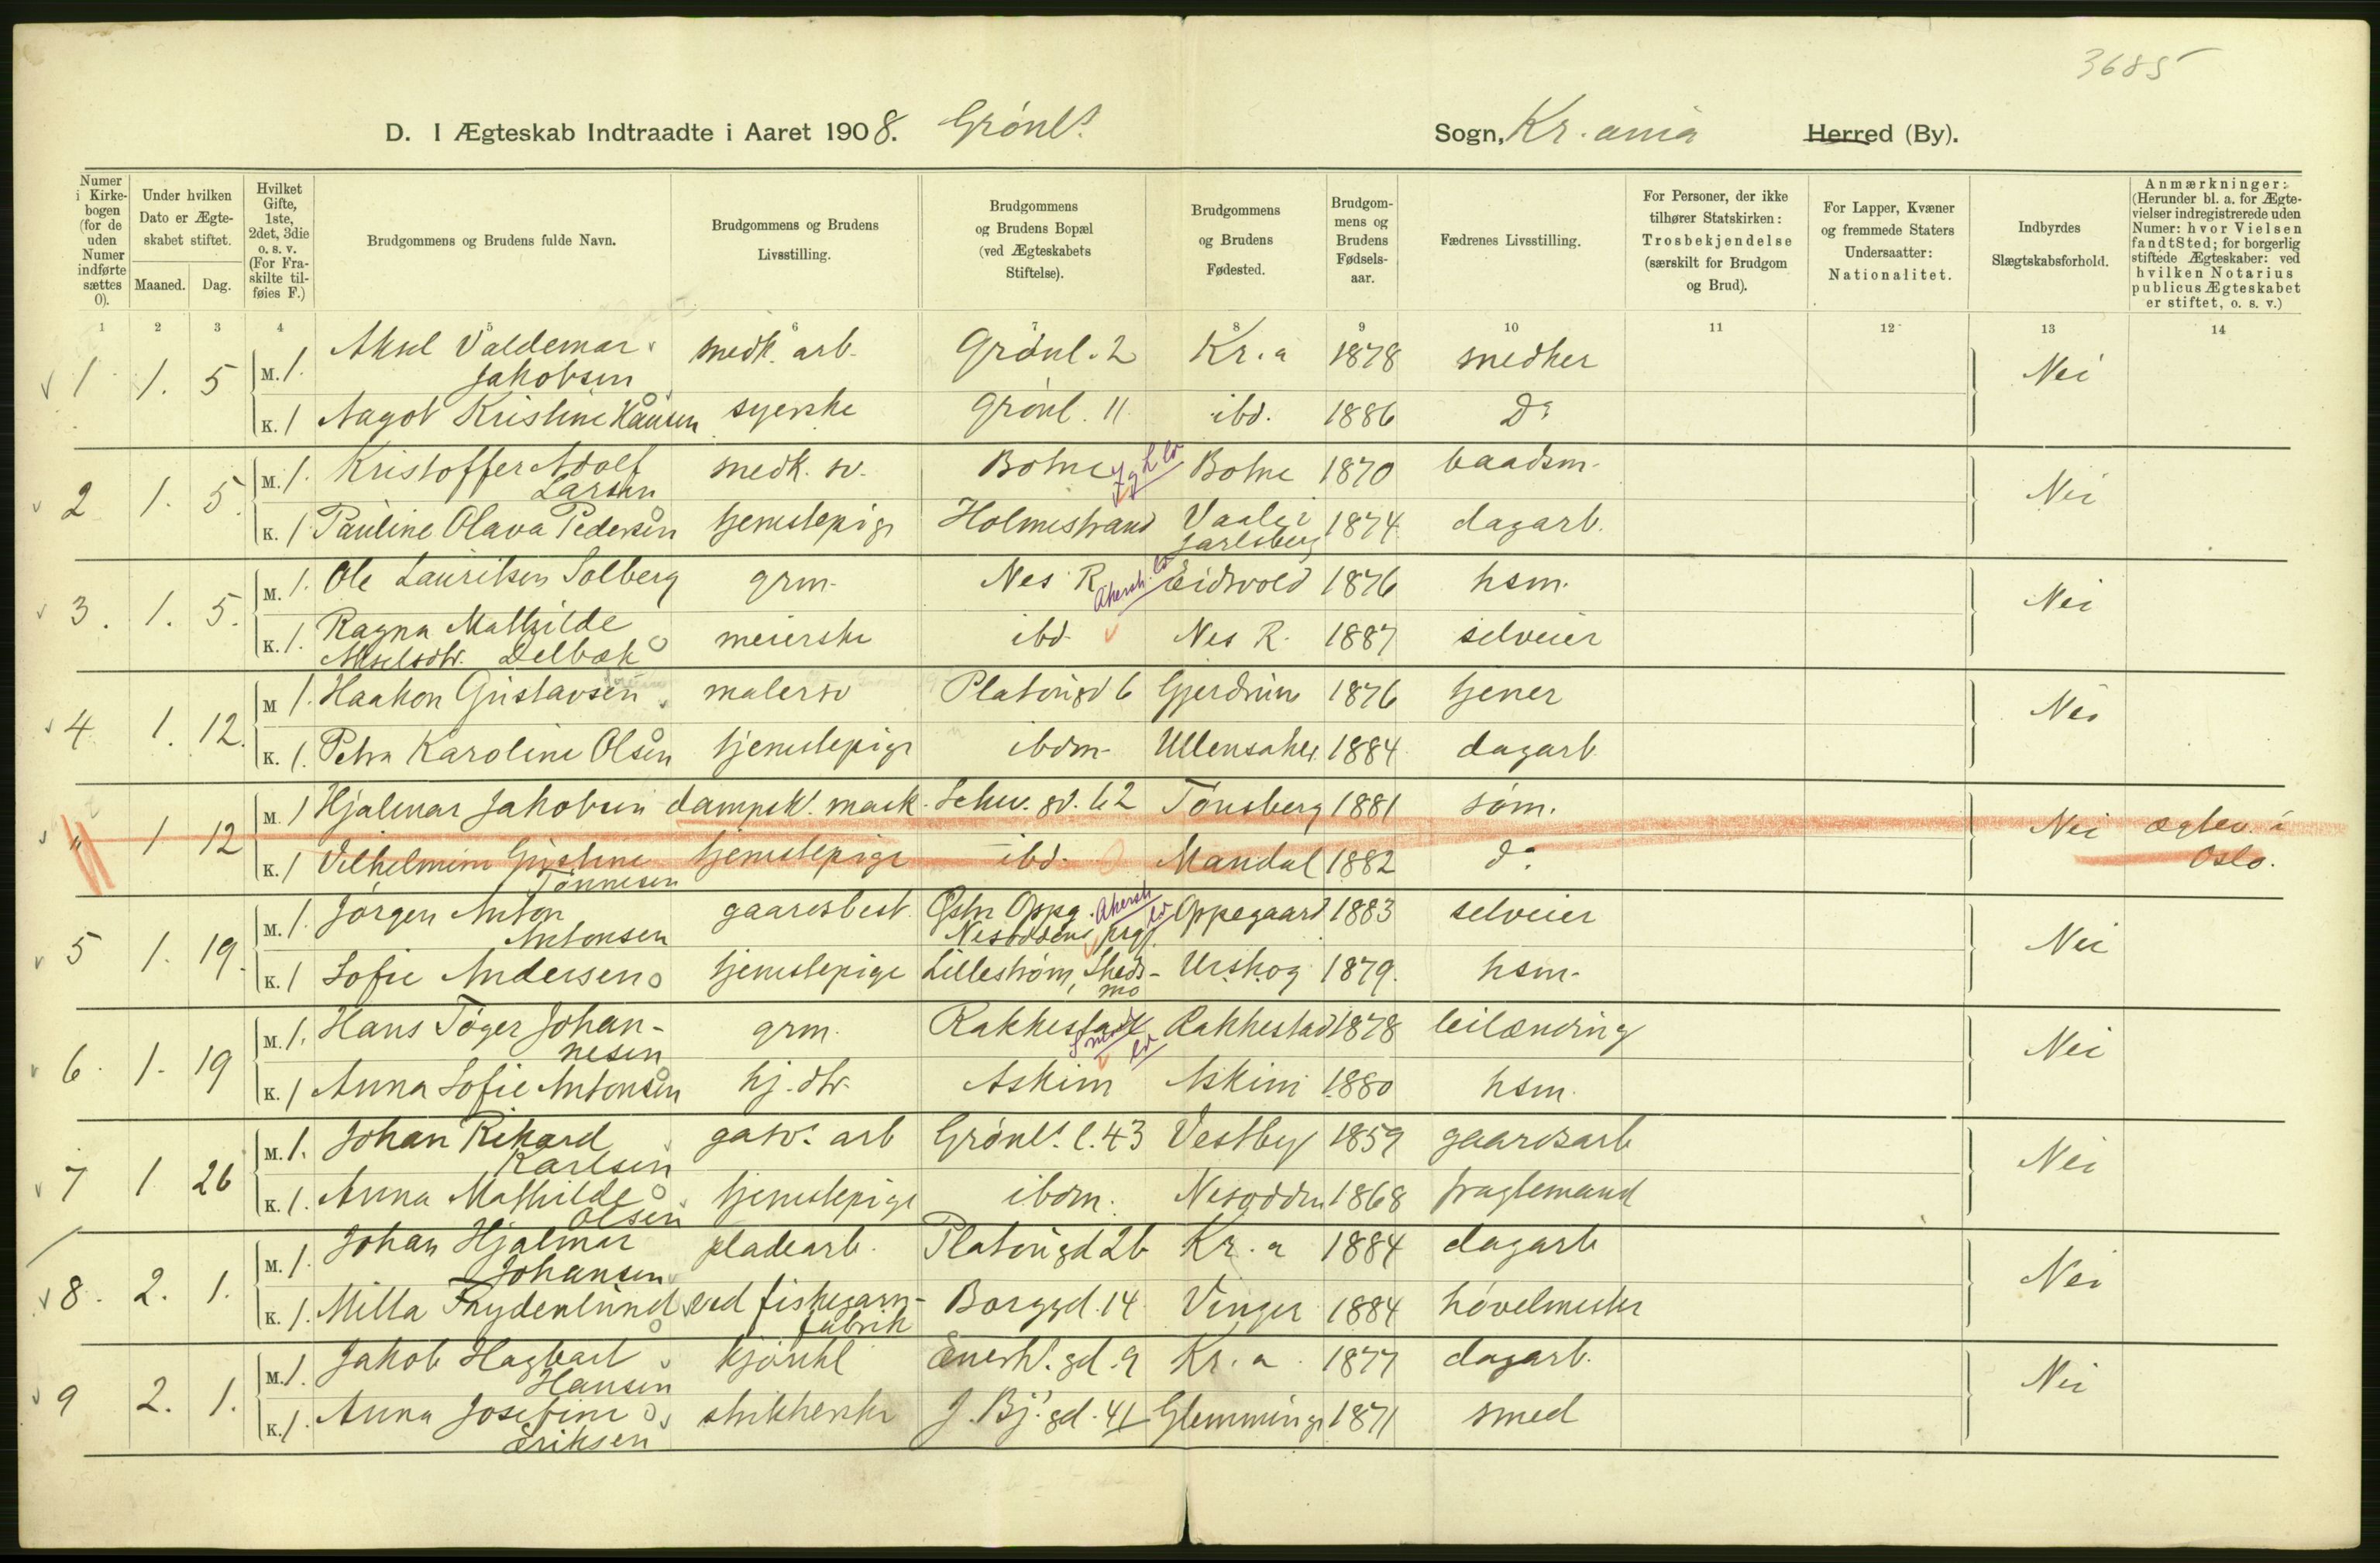 3685
D. I Ægteskab Indtraadte i Aaret 1908. Grønl. Sogn, Kr.ania Herred (By).
Numer i Kirkebogen (for de uden Numer indførte sættes 0).
Under hvilken Dato er Ægteskabet stiftet.
Maaned. Dag.
Hvilket Gifte, 1ste, 2det, 3die o. s. v. (For Fraskilte tilføies F.)
Brudgommens og Brudens fulde Navn.
Brudgommens og Brudens Livsstilling.
Brudgommens og Brudens Bopæl (ved Ægteskabets Stiftelse).
Brudgommens og Brudens Fødested.
Brudgommens og Brudens Fødselsaar.
Fædrenes Livsstilling.
For Personer, der ikke tilhører Statskirken: Trosbekjendelse (særskilt for Brudgom og Brud).
For Lapper, Kvæner og fremmede Staters Undersaatter: Nationalitet.
Indbyrdes Slægtskabsforhold.
Anmærkninger: (Herunder bl. a. for Ægtevielser indregistrerede uden Numer: hvor Vielsen fandt Sted; for borgerlig stiftede Ægteskaber: ved hvilken Notarius publicus Ægteskabet er stiftet, o. s. v.)
1 2 3 4 5 6 7 8 9 10 11 12 13 14
1 1. 5 M. 1. Aksel Valdemar Jakobsen medk. arb. Grønl. 2 Kr.a 1878 snedker Nei
K. 1 Aagot Kristine Hansen syerske Grønl. 11 ibd. 1886 Do
2 1. 5. M. 1. Kristoffer Adolf Larsen snedk. sv. Botne Botne 1870 baadsm. Nei
K. 1 Pauline Olava Pedersen tjenestepige Holmestrand Vaale i Jarlsberg 1874 dagarb.
3. 1. 5. M. 1. Ole Lauritsen Solberg grm. Nes R. Akersh. Eidsvold 1876 hsm. Nei
K. 1. Ragna Mathilde Akselsdtr. Delbæk meierske ibd. Nes R. 1887 selveier
4 1. 12. M 1. Haakon Gustavsen malersv Platougd 6 Gjerdrum 1876 tjener Nei
K. 1. Petra Karoline Olsen tjenestepige ibdm. Ullensaker 1884 dagarb
" 1 12 M. 1 Hjalmar Jakobsen dampsk. mask. Schw. gd. 62 Tønsberg 1881 søm. Nei ægtev. i Oslo.
K. 1 Vilhelmine Gustine Tønnesen tjenestepige ibd. Mandal 1882 do
5 1. 19. M. 1. Jørgen Anton Antonsen gaardsbest. Østre Oppg. Nesoddens prgj. Akersh Oppegaard 1883 selveier Nei
K. 1 Sofie Andersen tjenestepige Lillestrøm, Skedsmo Urskog 1879. hsm.
6. 1. 19 M. 1. Hans Tøger Johannesen grm. Rakkestad Rakkestad 1878 leilænding Nei
K. 1 Anna Sofie Antonsen hj. dtr. Askim Askim 1880 hsm.
7 1 26 M. 1. Johan Rikard Karlsen gasv. arb Grønl. l. 43 Vestby 1859 gaardsarb Nei
K. 1. Anna Mathilde Olsen tjenestepige ibdm. Nesodden 1868 fragtemand
8. 2. 1. M. 1. Johan Hjalmar Johansen pladearb. Platougd 26 Kr.a 1884 dagarb Nei
K. 1. Milla Frydenlund ved fiskegarnfabrik Borggd. 14 Vinger 1884 høvelmester
9 2. 1. M. 1. Jakob Hagbart Hansen kjørekl Enerh. gd. 9 Kr.a 1877 dagarb. Nei
K. 1. Anna Josefine Eriksen strikkerske J. Bj. gd. 41 Glemminge 1871 smed